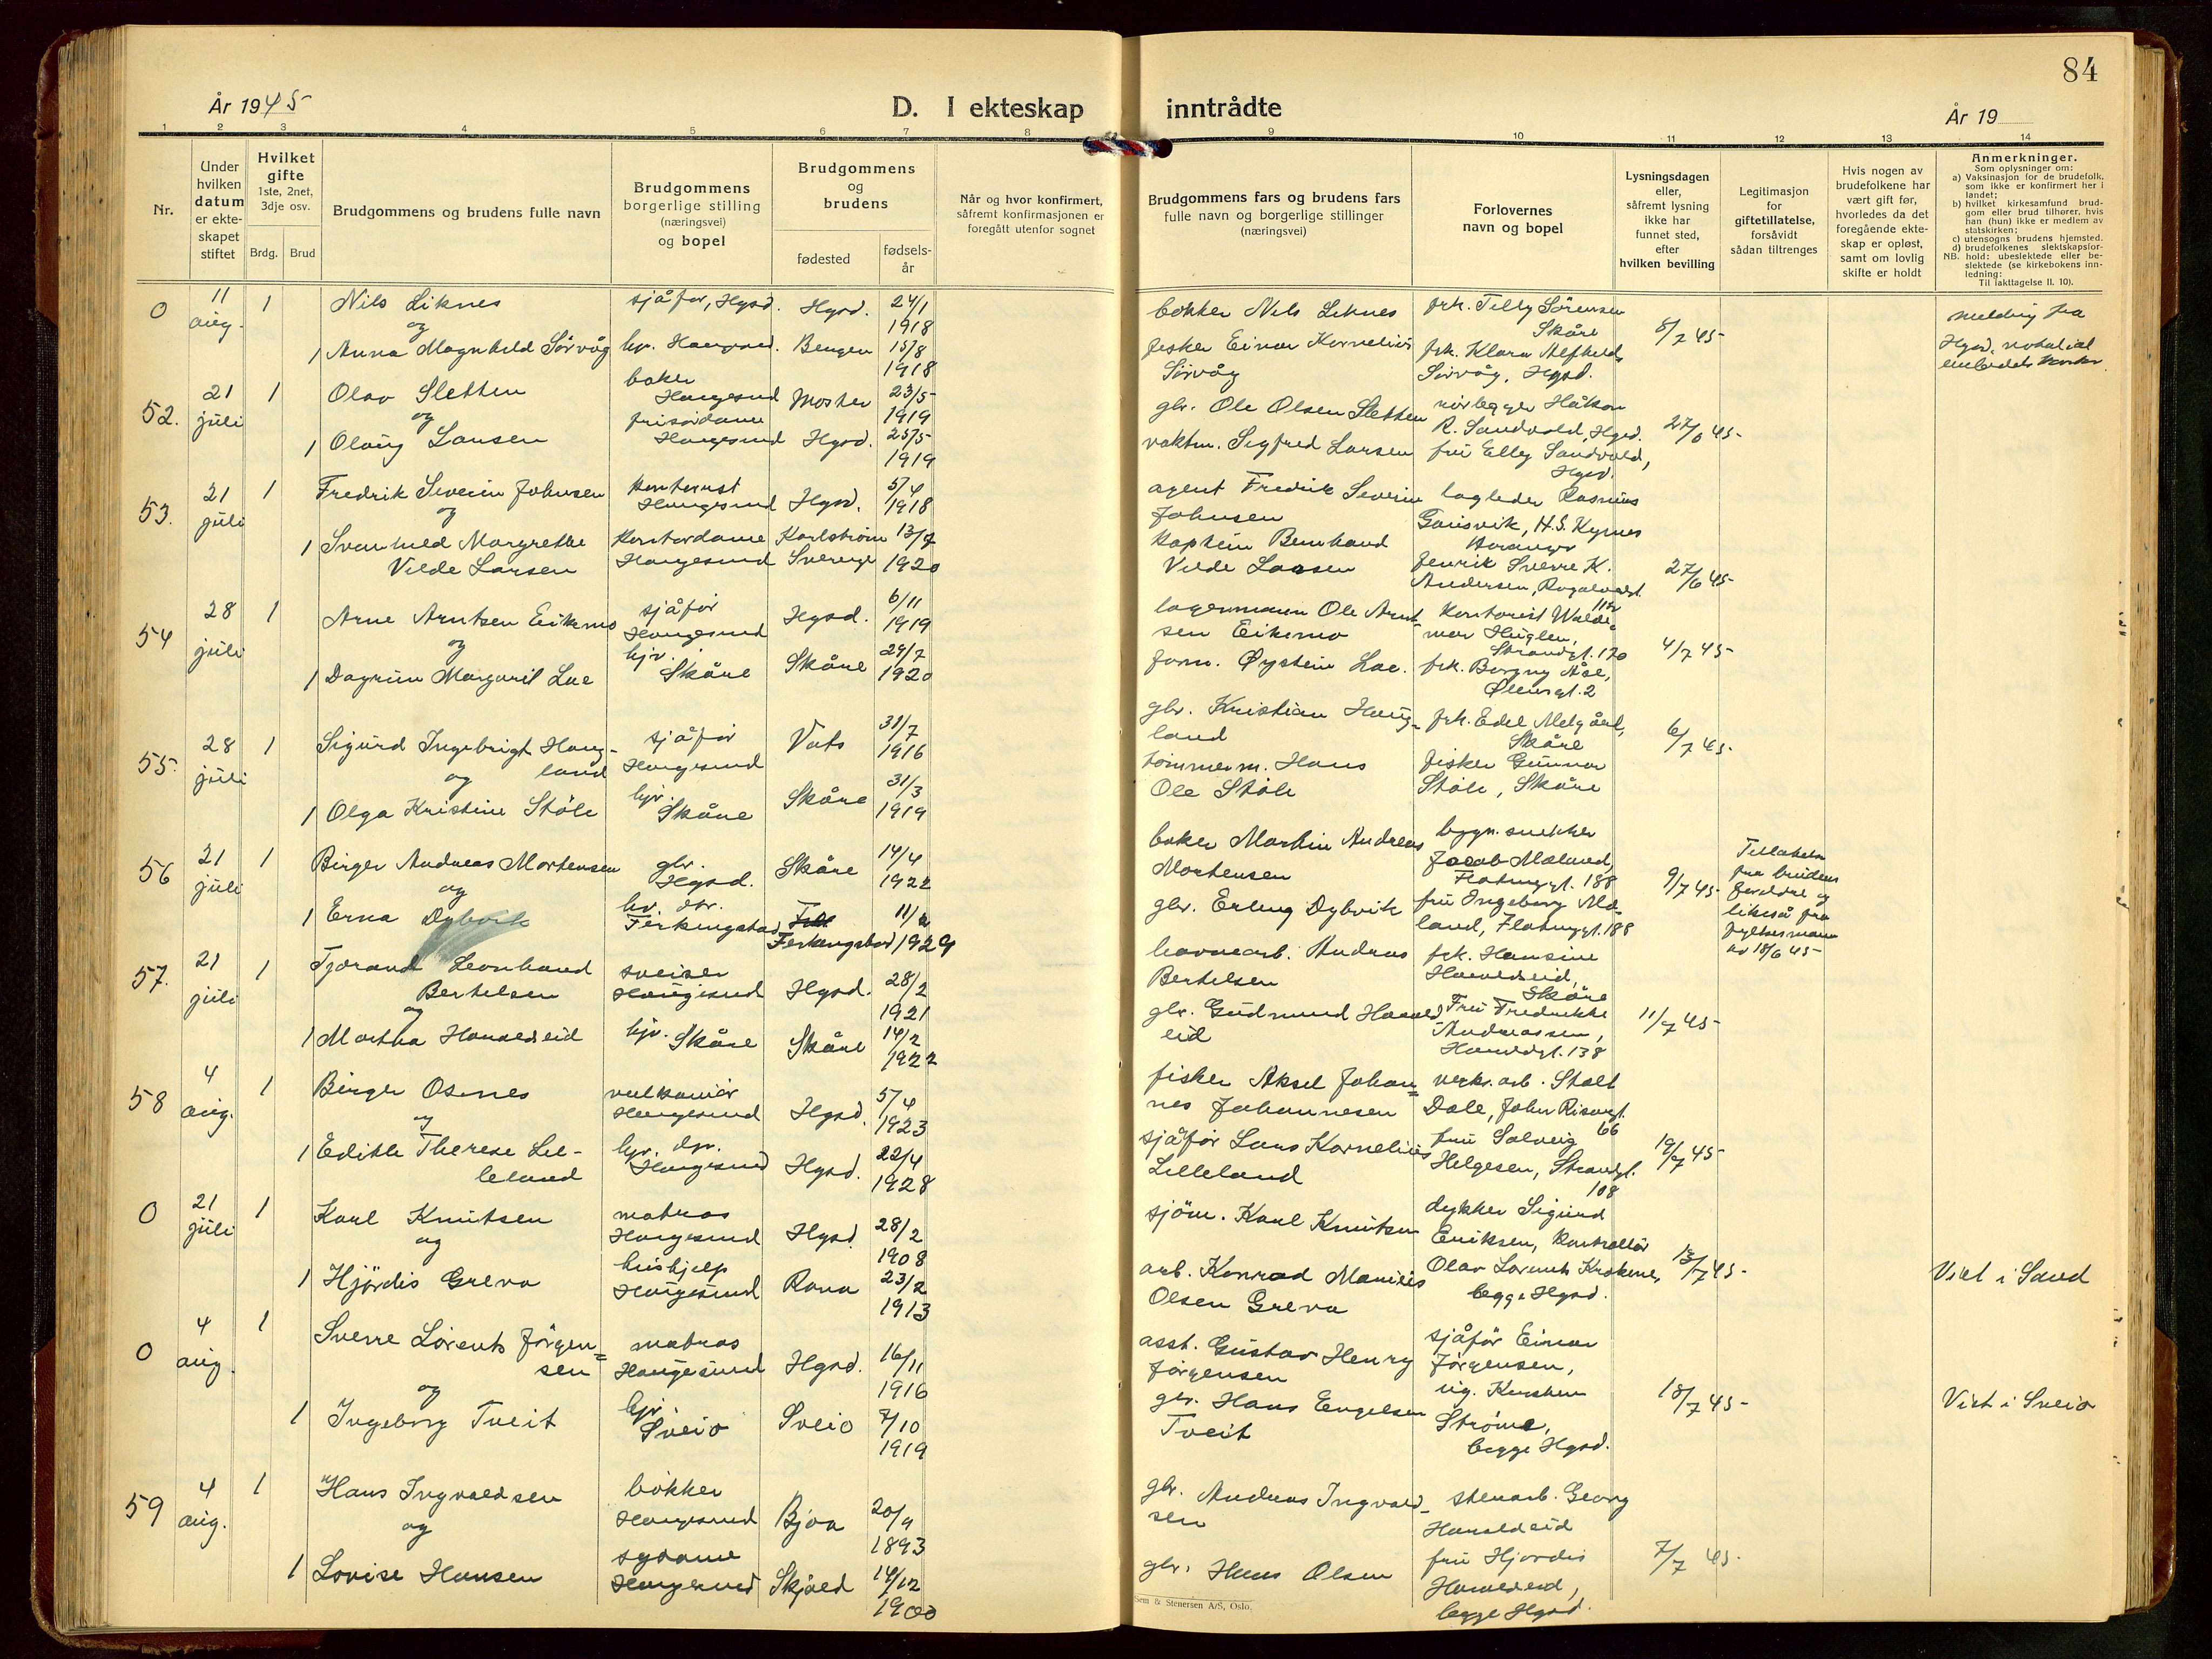 84
År 1945
D. I ekteskap inntrådte
År 19
1 2 3 4 5 6 7 8 9 10 11 12 13 14
Nr.
Under hvilken datum er ekteskapet stiftet
Hvilket gifte 1ste, 2net, 3dje osv.
Brdg. Brud
Brudgommens og brudens fulle navn
Brudgommens borgerlige stilling (næringsvei) og bopel
Brudgommens og brudens
fødested
fødsels-år
Når og hvor konfirmert, såfremt konfirmasjonen er foregått utenfor sognet
Brudgommens fars og brudens fars fulle navn og borgerlige stillinger (næringsvei)
Forlovernes navn og bopel
Lysningsdagen eller, såfremt lysning ikke har funnet sted, efter hvilken bevilling
Legitimasjon for giftetillatelse, forsåvidt sådan tiltrenges
Hvis nogen av brudefolkene har vært gift før, hvorledes da det foregående ekteskap er opløst, samt om lovlig skifte er holdt
Anmerkninger.
Som oplysninger om:
a) Vaksinasjon for de brudefolk, som ikke er konfirmert her i landet;
b) hvilket kirkesamfund brudgom eller brud tilhører, hvis han (hun) ikke er medlem av statskirken;
c) utensogns brudens hjemsted.
d) brudefolkenes slektskapsforhold: ubeslektede eller beslektede (se kirkebokens innledning:
NB.
Til iakttagelse II. 10).
0 11 aug. 1 Nils Liknes sjåfør, Hgsd. Hgsd. 24/1 1918 bøkker Nils Liknes frk. Tilly Sørensen Skåre 8/7 45 melding fra
og
1 Anna Magnhild Sørvåg hv. Haugesund. Bergen 15/8 1918 fisker Einar Kornelius Sørvåg frk. Klara Alfhild Sørvåg, Hgsd. Hgsd. notarial
52. 21 juli 1 Olav Sletten baker Haugesund Moster 23/5 1919 gbr. Ole Olsen Sletten rørlegger Håkon R. Sandvold, Hgsd. 27/6 45
og
1 Olaug Larsen frisørdame Haugesund Hgsd. 25/5 1919 vaktm. Sigfred Larsen fru Elly Sandvold, Hgsd.
53. 21 juli 1 Fredrik Severin Johnsen kontorist Haugesund Hgsd. 5/4 1918 agent Fredrik Severin Johnsen lagleder Rasmus
og
1 Svanhild Margrethe Vilde Larsen kontordame Haugesund Karlstrøm Sverige 13/7 1920 kaptein Bernhard Vilde Larsen Henrik Sverre K. Andersen, 27/6 45
54 28 juli 1 Arne Arntsen Eikemo sjåfør Haugesund Hgsd. 6/11 1919 lagermann Ole Arntsen Eikemo kontorist Waldemar Huglen, Strandgt. 170 4/7 45
og
1 Dagrun Margarit Lae hjv. Skåre Skåre 29/7 1920 form. Øystein Lae. frk. Borgny Åse, Ølensgt. 2
55. 28 juli 1 Sigurd Ingebrigt Haugland sjåfør Haugesund Vats 31/7 1916 gbr. Kristian Haugland frk. Edel Melgård, Skåre 6/7 45
og
1 Olga Kristine Støle hjv. Skåre Skåre 31/3 1919 tømmerm. Hans Ole Støle fisker Gunnar Støle, Skåre
56 21 juli 1 Birger Andreas Mortensen gbr. Hgsd. Skåre 14/4 1922 baker Martin Andreas Mortensen bygn. snekker Jacob Mæland, Flotmyrgt. 188 9/7 45 Tillatelse fra brudens foreldre og likeså fra fylkesmann av 18/6 45
og
1 Erna Dybvik hv. dtr. Ferkingstad Ferkingstad 1929 gbr. Erling Dybvik fru Ingeborg Mæland, Flotmyrgt. 188
57. 21 juli 1 Tjørand Leonhard Bertelsen sveiser Haugesund Hgsd. 28/2 1921 havnearb. Andreas Bertelsen frk. Hansine Haraldseid, Skåre
og
1 Martha Haraldseid hjv. Skåre Skåre 14/2 1922 gbr. Gudmund Haraldseid Fru Fredrikke Andreassen, Haraldsgt. 138 11/7 45
58 4 aug. 1 Birger Osnes vulkanisør Haugesund Hgsd. 5/4 1923 fisker Aksel Johannes Johannesen verks. arb. Stolt Dale, John Risøgt. 66
og
1 Edith Therese Lilleland Haugesund Hgsd. 22/4 1928 sjåfør Lars Kornelius Lilleland fru Solveig Helgesen, Strandgt. 108 19/7 45
0 21 juli 1 Karl Knutsen matros Haugesund Hgsd. 28/2 1908 sjøm. Karl Knutsen dykker Sigurd Eriksen, kontrollør
og
1 Hjørdis Greva hushjelp Haugesund Rana 23/2 1913 arb. Konrad Marius Olsen Greva Olav Lorents Krokene, begge Hgsd. 13/7 45 Viet i Sand
0 4 aug. 1 Sverre Lorents Jørgensen matros Haugesund Hgsd. 16/11 1916 asst. Gustav Henry Jørgensen sjåfør Einar Jørgensen,
og
1 Ingeborg Tveit hjv. Sveio Sveio 7/10 1919 gbr. Hans Engelsen Tveit Strøme, begge Hgsd. 18/7 45 Viet i Sveio
59 4 aug. 1 Hans Ingvaldsen bøkker Haugesund Bjoa 20/9 1893 gbr. Andreas Ingvaldsen stenarb. Georg Haraldseid
og
1 Lovise Hansen sydame Haugesund Skjold 14/12 1900 gbr. Hans Olsen fru Hjørdis Haraldseid, begge Hgsd. 7/7 45
Sem & Stenersen A/S, Oslo.